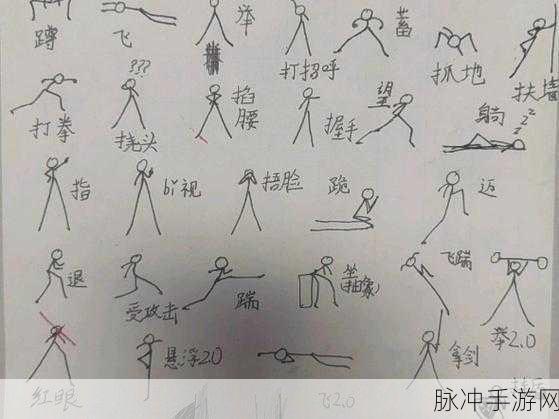 蹲
飞
举
打招呼
蓄
抓地
扶墙
打拳
???
挠头
掐腰
握手
望
躺
zzz
指
bi视
捂脸
跪
迈
退
受攻击
踹
坐
(抽象)
飞踹
举2.0
红眼
悬浮2.0
飞2.0
拿剑
脉冲手游网